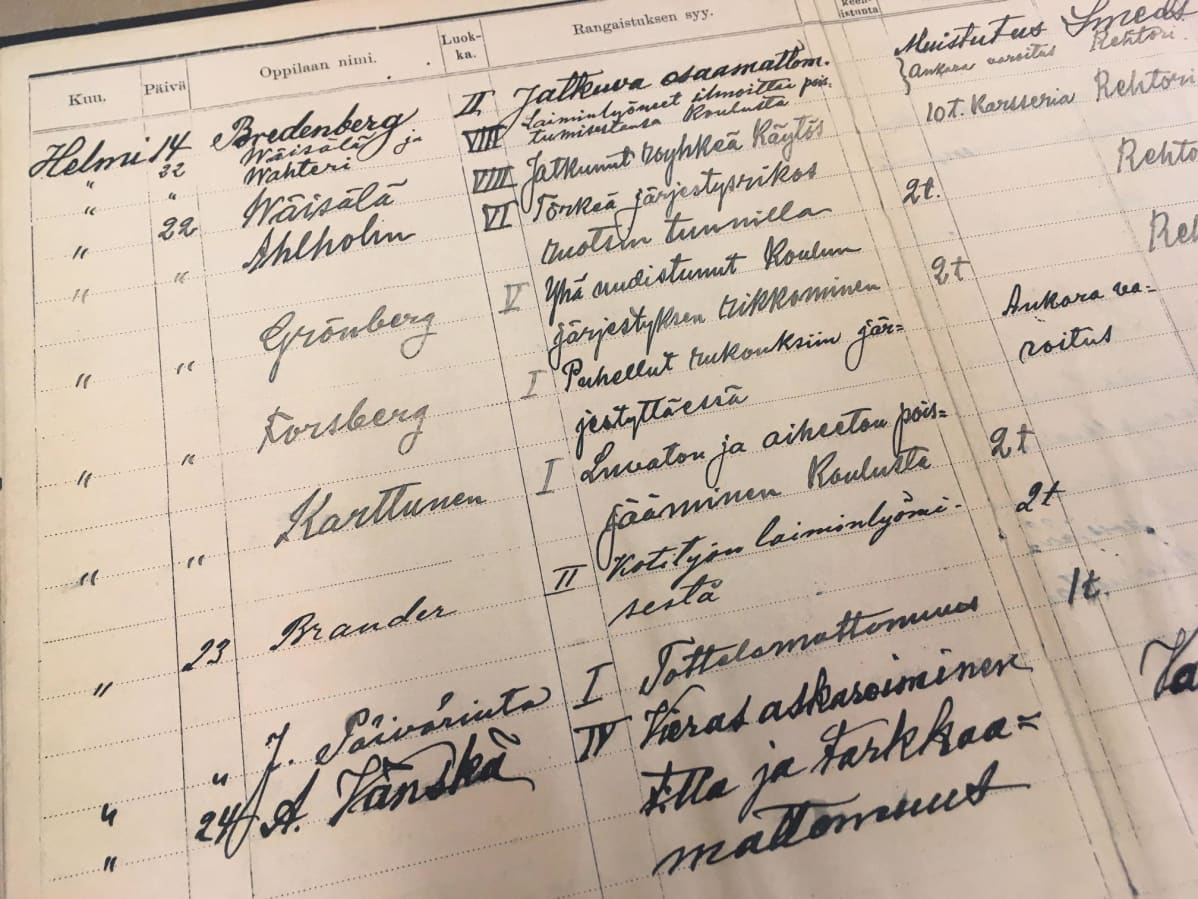 Kuu. Päivä Oppilaan nimi. Luok-ka. Rangaistuksen syy.
Helmi 14 Bredenberg II Jatkuva osaamattom. Muistutus Smeds
" 22 Wäisälä ja Wahteri VIII Laiminlyöneet ilmoittaa pois-tumisestansa Koulusta Ankara varoitus Rehtori.
" " Wäisälä VIII Jatkunut röyhkeä Käytös 10 t. Karsseria Rehtori
" 22 Ahlholm VI Törkeä järjestysrikos
" ruotsin tunnilla 2 t.
" Grönberg V Yhä uudistunut Koulun
järjestyksen rikkominen 2 t
" " Forsberg I Puhellut rukouksiin jär=
jestyttäessä Ankara va=
roitus
" " Karttunen I Luvaton ja aiheeton pois=
jääminen Koulusta 2 t
" " Brander II Kotityön laiminlyömi-
sestä 2 t
" 23 J. Päivärinta I Tottelemattomuus 1 t.
" " A. Vänskä IV Vieras askaroiminen
" 24
ja tarkkaa=
mattomuus
"